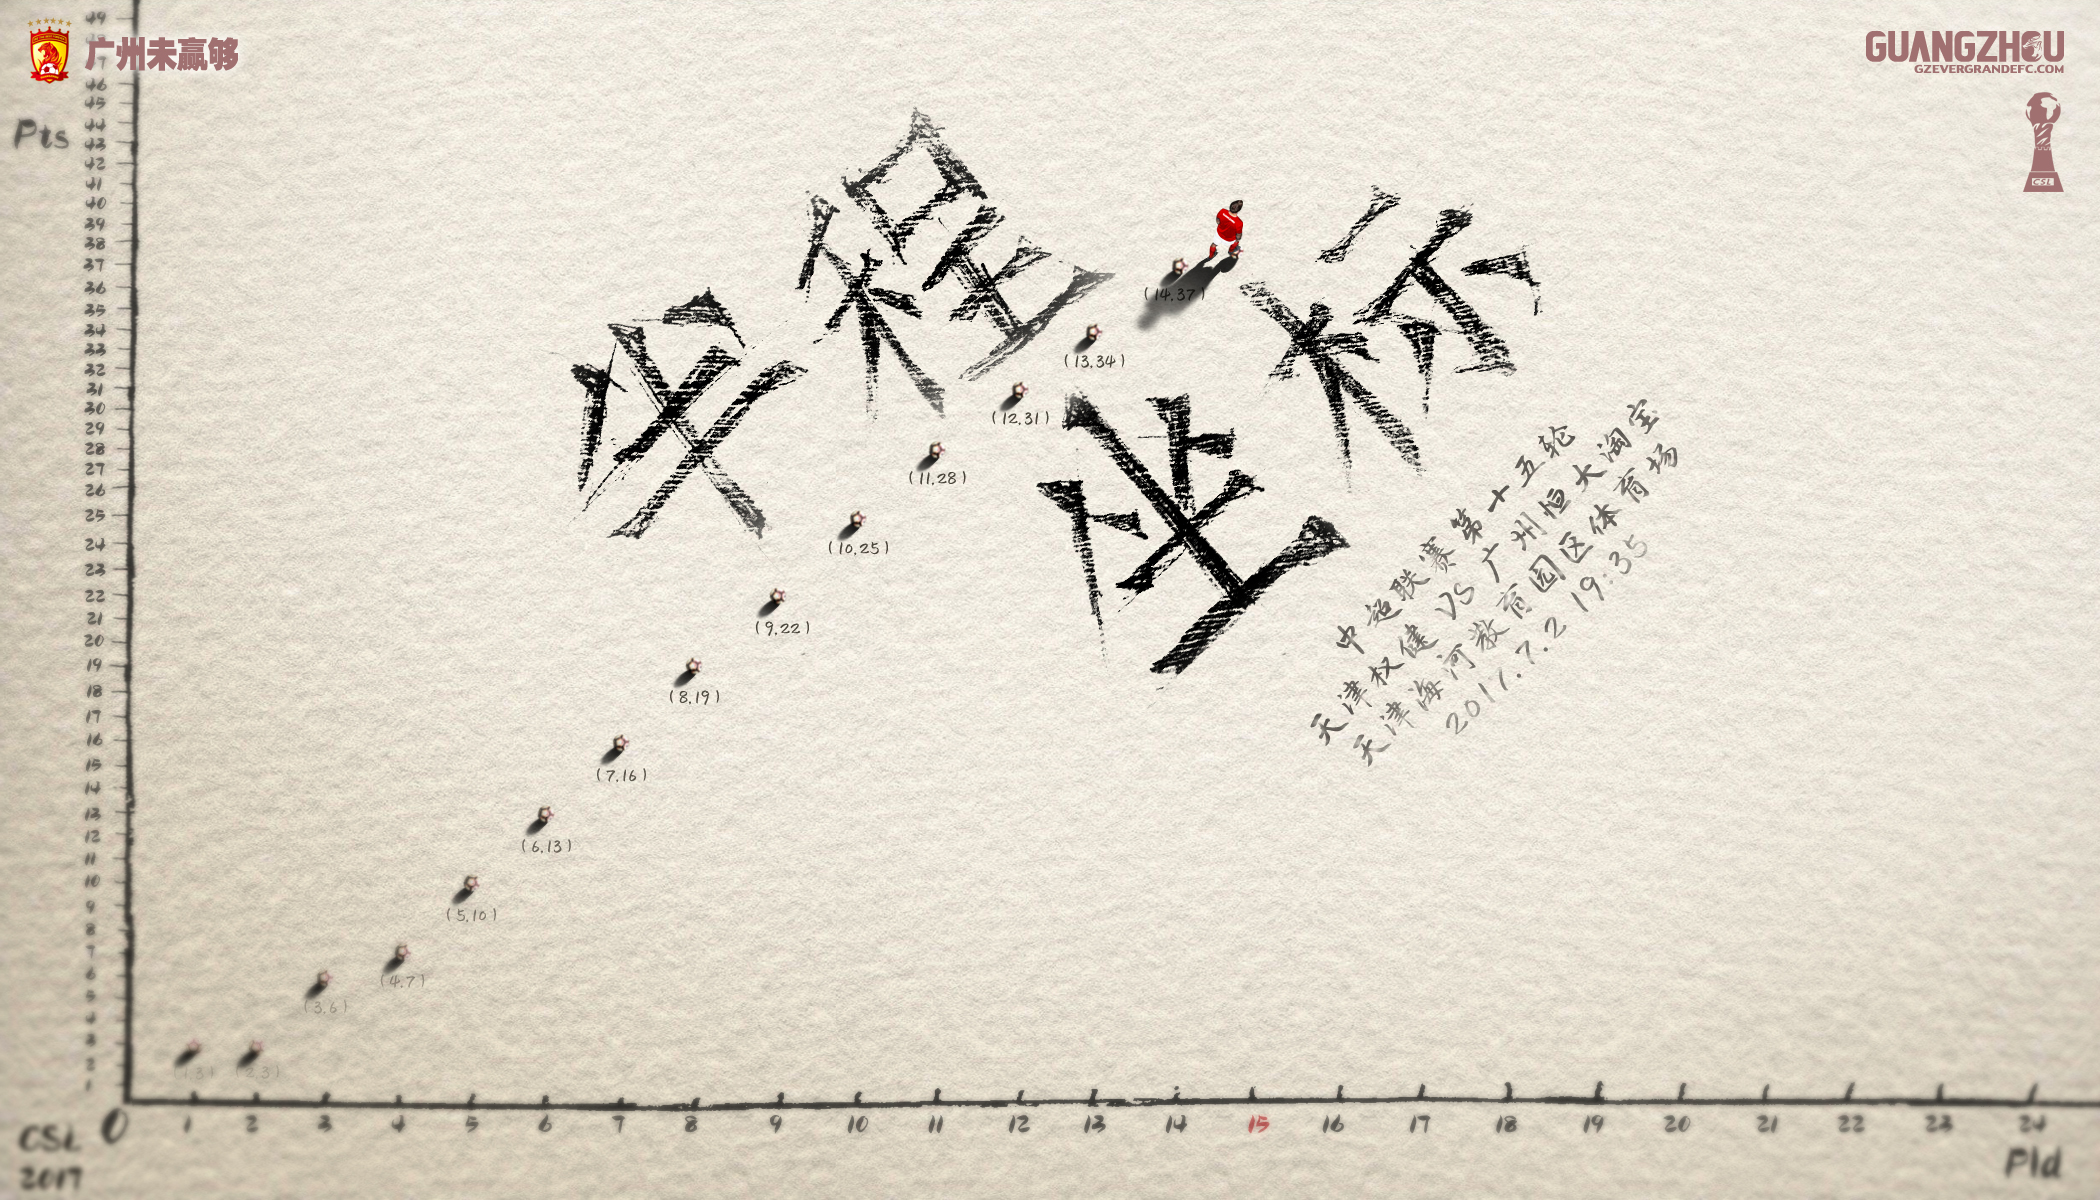 广州未赢够
GUANGZHOU
GZEVERGRANDEFC.COM
CSL
Pts
49
46
45
44
43
42
41
40
39
38
37
36
35
34
33
32
31
30
29
28
27
26
25
24
23
22
21
20
19
18
17
16
15
14
13
12
11
10
9
8
7
6
5
4
3
2
1
程
(14,37)
(13,34)
(12,31)
(11,28)
(10,25)
(9,22)
(8,19)
(7,16)
(6,13)
(5,10)
(4,7)
(3,6)
(2,3)
(1,3)
中超联赛第十五轮
天津权健 VS 广州恒大淘宝
天津海河教育园区体育场
2017.7.2 19:35
0 1 2 3 4 5 6 7 8 9 10 11 12 13 14 15 16 17 18 19 20 21 22 23 24
CSL
2017
Pld